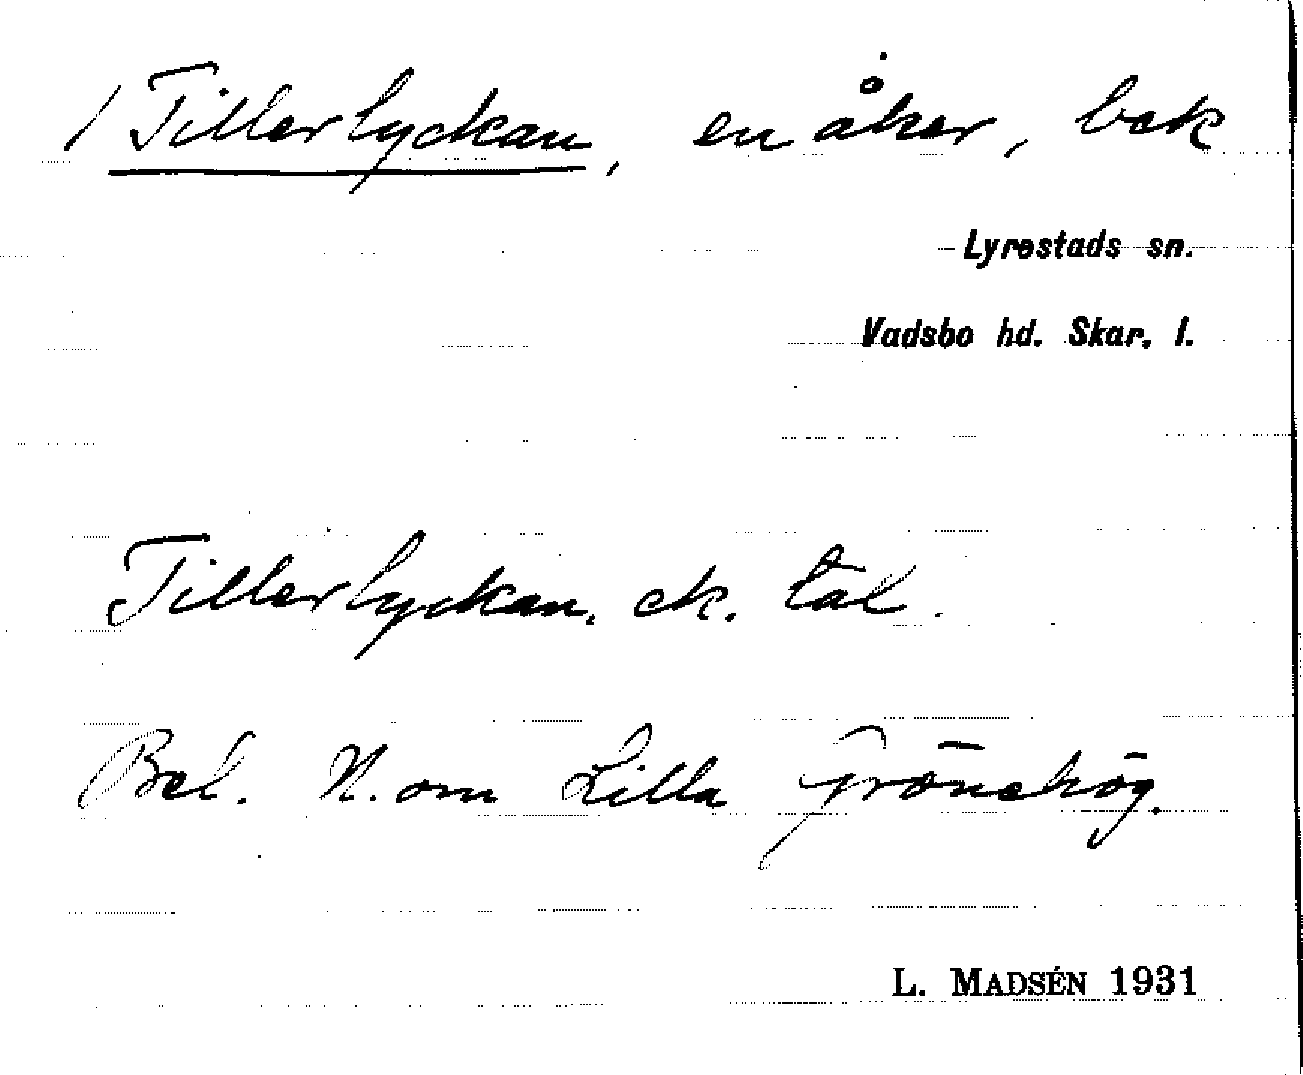 / Tillerlyckan, en åker, bek
Lyrestads sn.
Vadsbo hd. Skar. l.
Tillerlyckan. ek. tal.
Bel. N. om Lilla Frönehög.
L. MADSÉN 1931